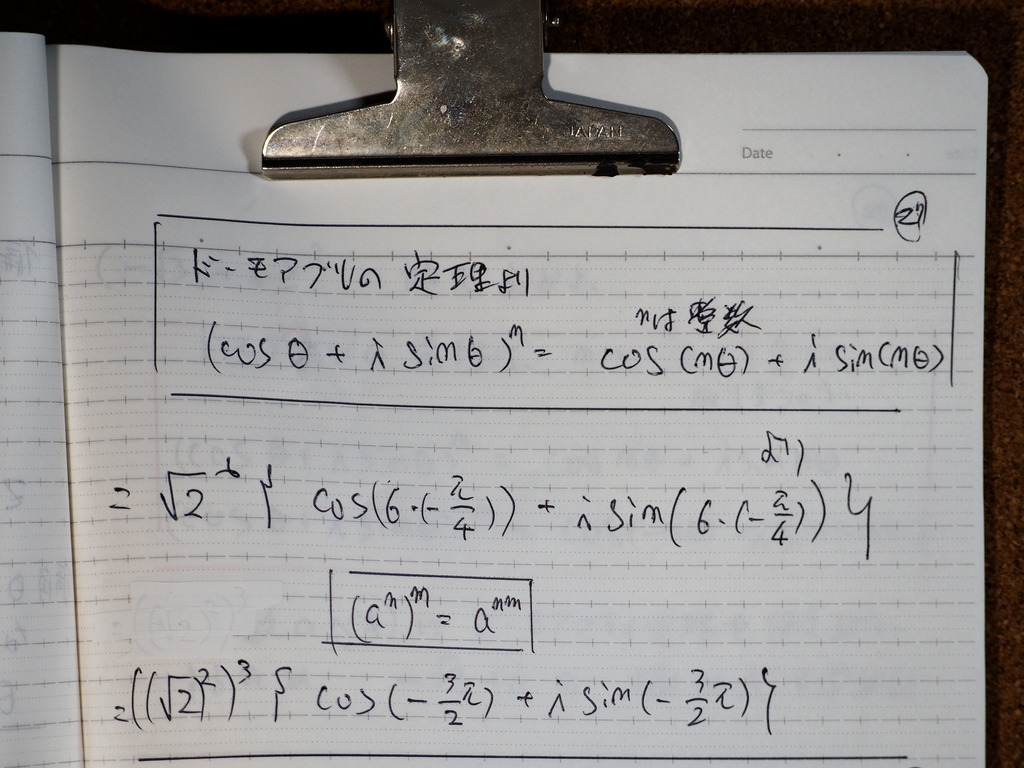 JAPAN
Date
27
ド・モアブルの定理より
nは整数
(cos θ + i sin θ)^n = cos(nθ) + i sin(nθ)
27)
= √2^6 { cos(6・(-π/4)) + i sin(6・(-π/4)) }
(a^n)^m = a^nm
= ((√2)^2)^3 { cos(-3/2π) + i sin(-3/2π) }